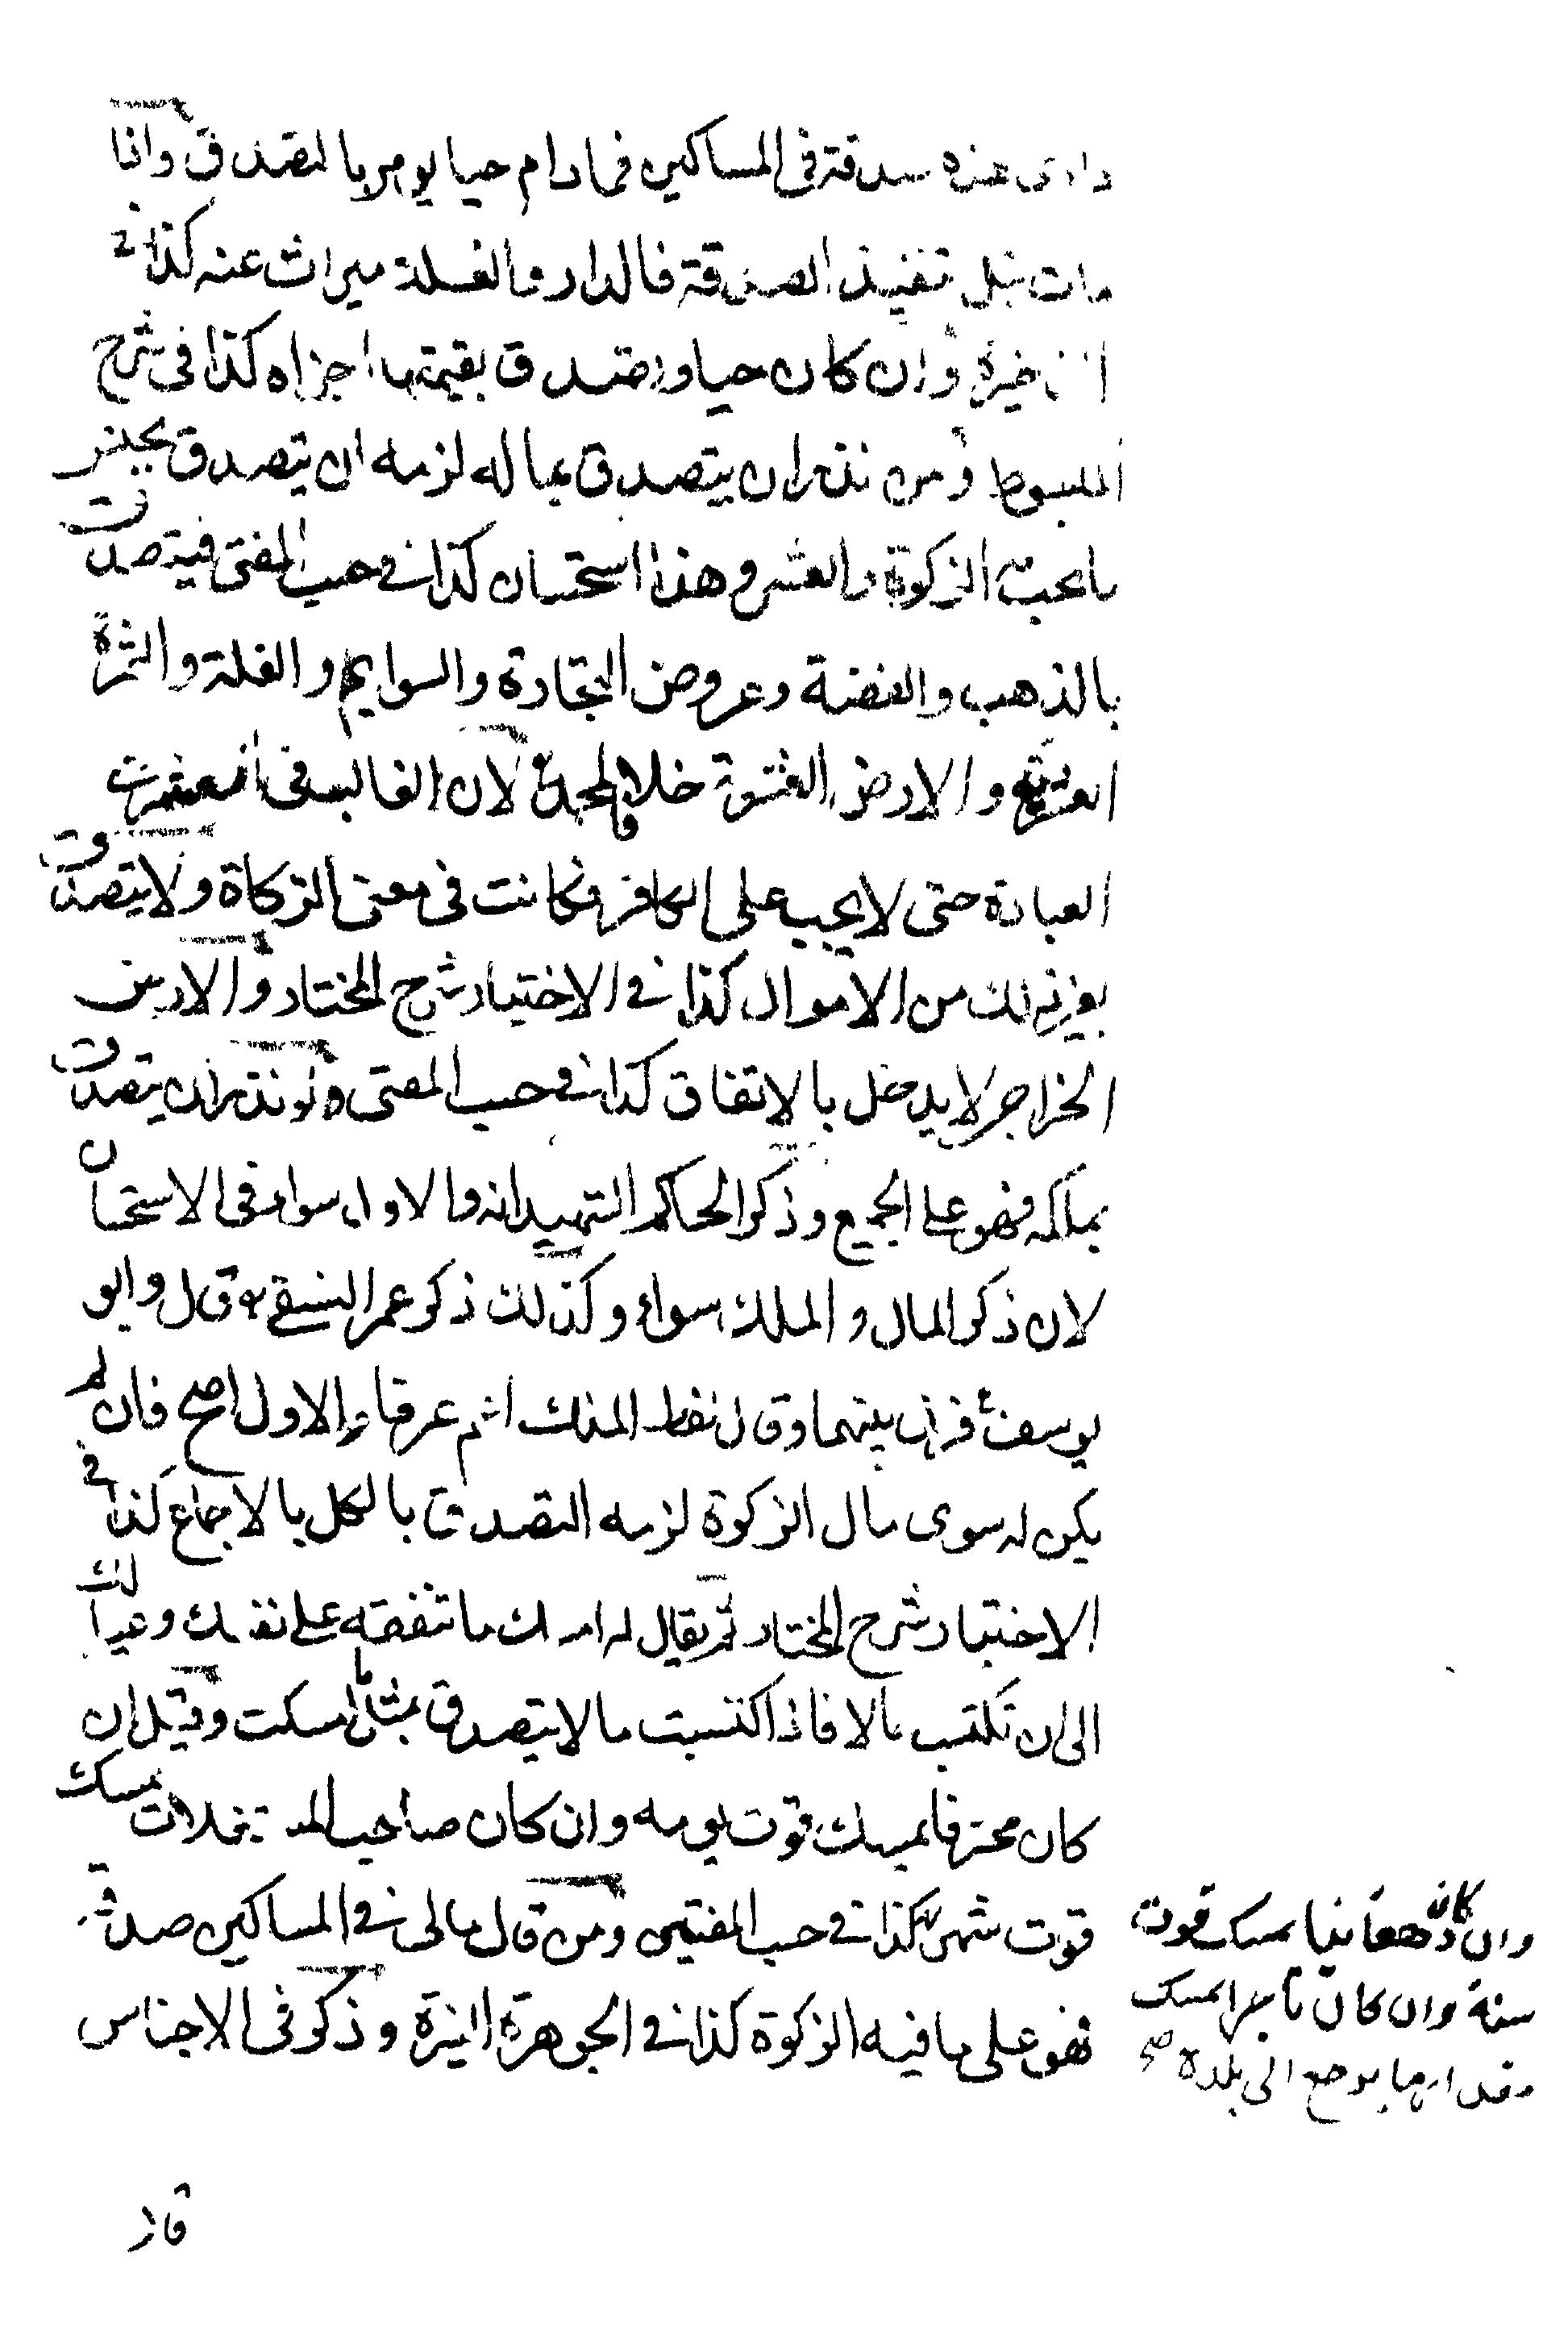 دارى هذه صدقة فى المساكين فمادام حيا يومر بالتصدق وان
مات قبل تنفيذ الصدقة فالدار والغلة ميراث عنه كذا فى
الذخيرة وان كان حيا وتصدق بقيمتها اجزاه كذا فى شرح
المبسوط ومن نذر ان يتصدق بماله لزمه ان يتصدق بجنس
ما يجب فيه الزكوة والعشر وهذا استحسان كذا فى حسب المفتى فيتصدق
بالذهب والفضة وعروض التجارة والسوايم والغلة والثمرة
العشرية والارض العشرية خلافا لمحمد لان الغالب فى
العبادة حتى لا يجب على الكافر فكانت فى معنى الزكاة ولا يتصدق
بغير ذلك من الاموال كذا فى الاختيار شرح المختار والارض
الخراجية لا يدخل بالاتفاق كذا فى حسب المفتى ولو نذر ان يتصدق
بملكه فهو على الجميع وذكر الحاكم الشهيد انه والاول سواء فى الاستحسان
لان ذكر المال والملك سواء وكذلك ذكر عمر النسفى وقال وابو
يوسف فرق بينهما وقال لفظ الملك اعم عرفا والاول اصح فان لم
يكن له سوى مال الزكوة لزمه التصدق بالكل بالاجماع كذا فى
الاختيار شرح المختار ثم يقال له امسك ما تنفقه على نفسك وعيالك
الى ان تكتسب مالا فاذا اكتسبت مالا يتصدق بمثل ما امسكت وقيل ان
كان محترفا يمسك قوت يومه وان كان صاحب المستغلات يمسك
قوت شهر كذا فى حسب المفتين ومن قال مالى فى المساكين صدقة
فهو على ما فيه الزكوة كذا فى الجوهرة النيرة وذكر فى الاجناس
وان كان دهقانيا يمسك قوت
سنة وان كان تاجرا يمسك
مقدار ما يرجع الى بلده صح
قال